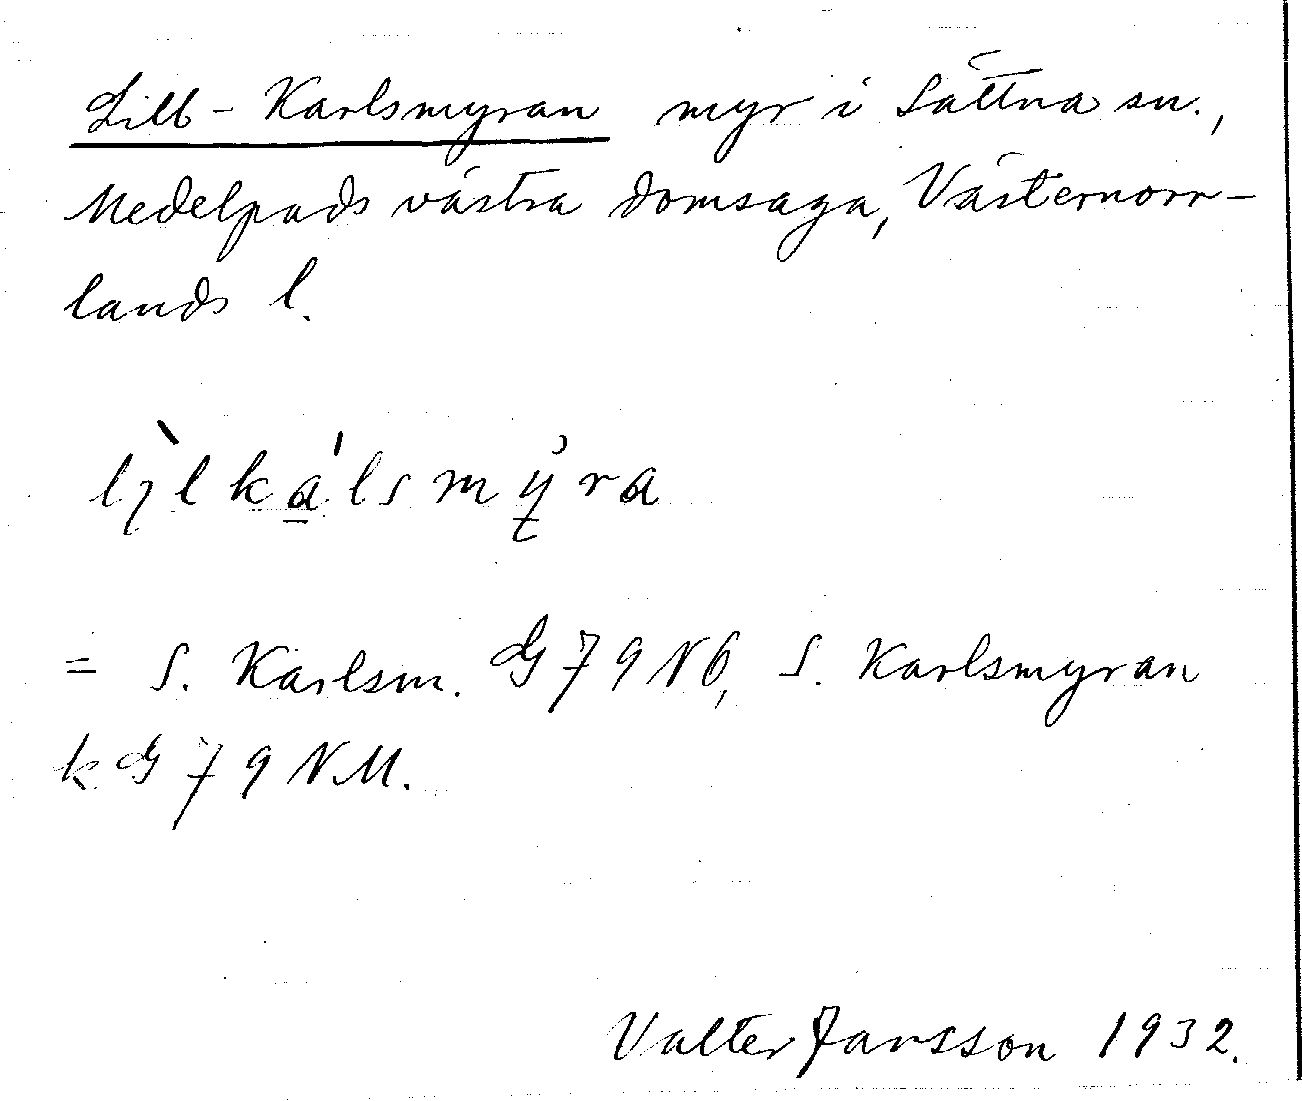 Lill-Karlsmyran myr i Sättna sn.,
Medelpads västra domsaga, Västernorr-
lands l.
lìlká̠lsmy̠ra
= S. Karlsm. G79N6, S. Karlsmyran
k G79 N.M.
Valter Jansson 1932.